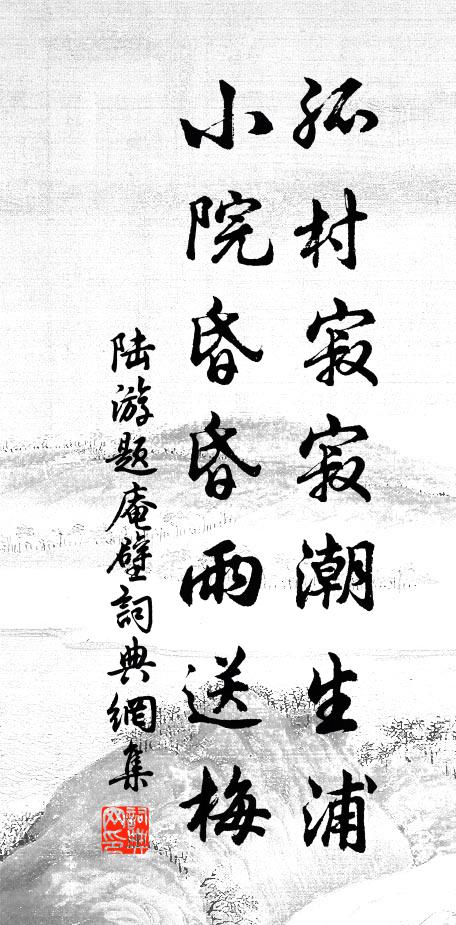 孤村寂寂潮生浦
小院昏昏雨送梅
陆游题庵壁詞典網集